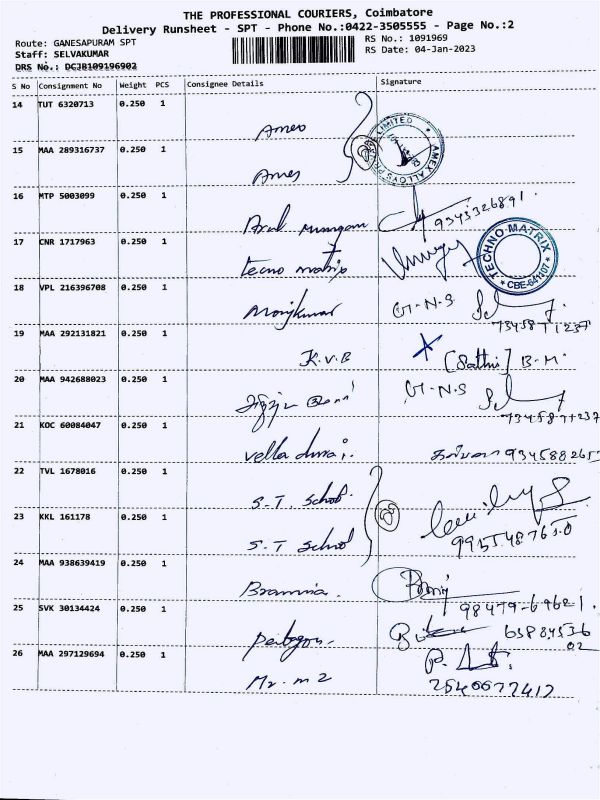 THE PROFESSIONAL COURIERS, Coimbatore
Delivery Runsheet - SPT - Phone No.:0422-3505555 - Page No.:2
Route: GANESAPURAM SPT
RS No.: 1091969
Staff: SELVAKUMAR
RS Date: 04-Jan-2023
DRS No.: DCJB109196902
S No Consignment No Weight PCS Consignee Details Signature
14 TUT 6320713 0.250 1
Amex
15 MAA 289316737 0.250 1
Amex
AMEX ALLOYS PRIVATE LIMITED
16 MTP 5003099 0.250 1
Arul murugan 9345326891.
17 CNR 1717963 0.250 1
tecno matrix
TECHNO-MATRIX
* CBE-641107 *
18 VPL 216396708 0.250 1
Manojkumar G-N-S
7345871237
19 MAA 292131821 0.250 1
K.V.B [Sathi] B.M.
20 MAA 942688023 0.250 1
G-N-S
7345871237
21 KOC 60084047 0.250 1
vella durai. 934588265
22 TVL 1678016 0.250 1
S.T. School.
23 KKL 161178 0.250 1
S.T School
9955487650
24 MAA 938639419 0.250 1
98479-69621.
25 SVK 30134424 0.250 1
65884536
02
26 MAA 297129694 0.250 1
Mr. m 2 2540677412